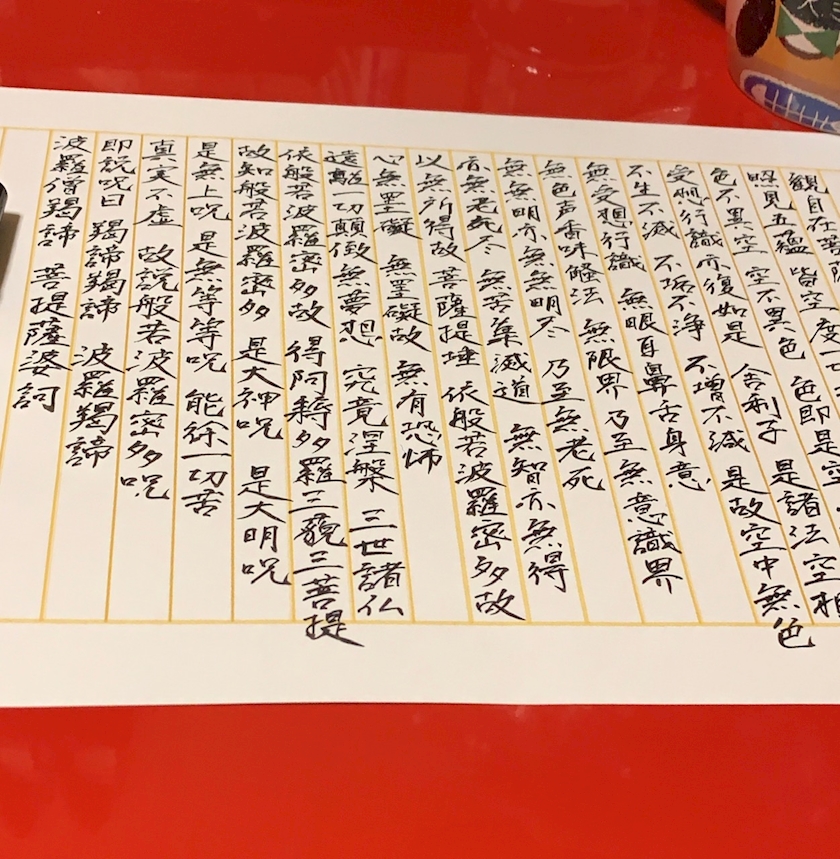 観自在菩
照見五蘊皆空度一
色不異空 空不異色 色即是空
受想行識亦復如是 舎利子 是諸法空相
不生不滅 不垢不浄 不増不減 是故空中無色
無受想行識 無眼耳鼻舌身意
無色声香味触法 無限界乃至無意識界
無無明亦無無明尽 乃至無老死
亦無老死尽 無苦集滅道 無智亦無得
以無所得故菩薩提埵 依般若波羅密多故
心無罣礙 無罣礙故 無有恐怖
遠離一切顛倒無夢想 究竟涅槃 三世諸仏
依般若波羅密多故 得阿耨多羅三藐三菩提
故知般若波羅密多 是大神呪 是大明呪
是無上呪 是無等等呪 能徐一切苦
真実不虚 故説般若波羅密多呪
即説呪曰 羯諦羯諦 波羅羯諦
波羅僧羯諦 菩提薩婆訶